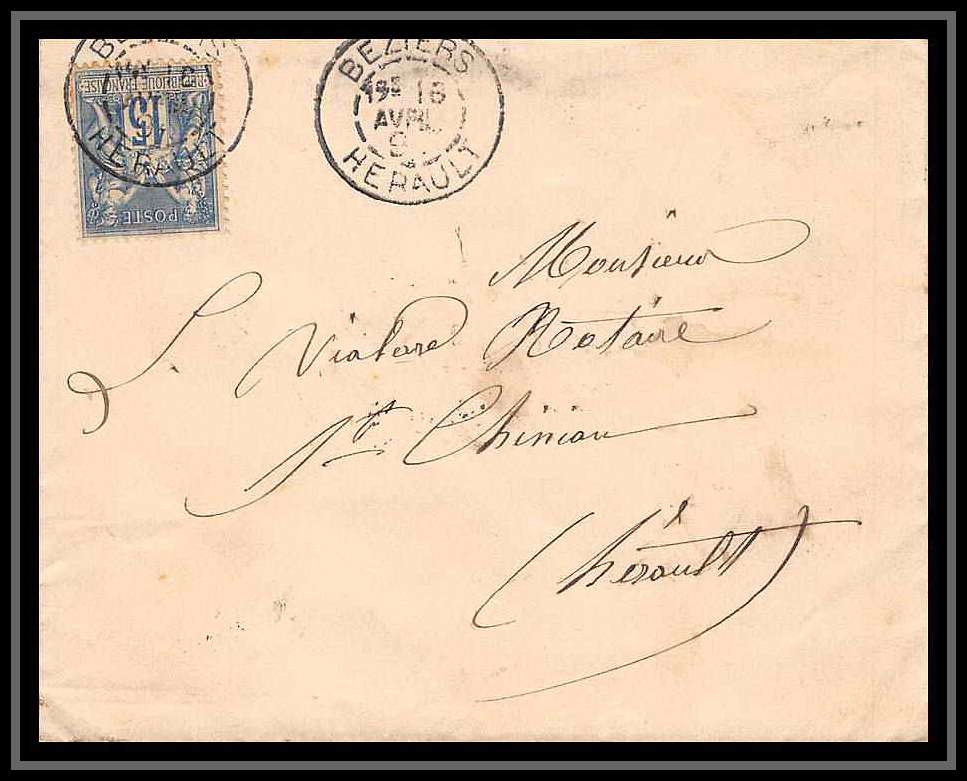 BEZIERS
HERAULT
REPUBLIQUE FRANCAISE
15
POSTE
BEZIERS
1RE 18
AVRIL
9
HERAULT
Monsieur
S. Vialare Notaire
St Chinian
(hérault)